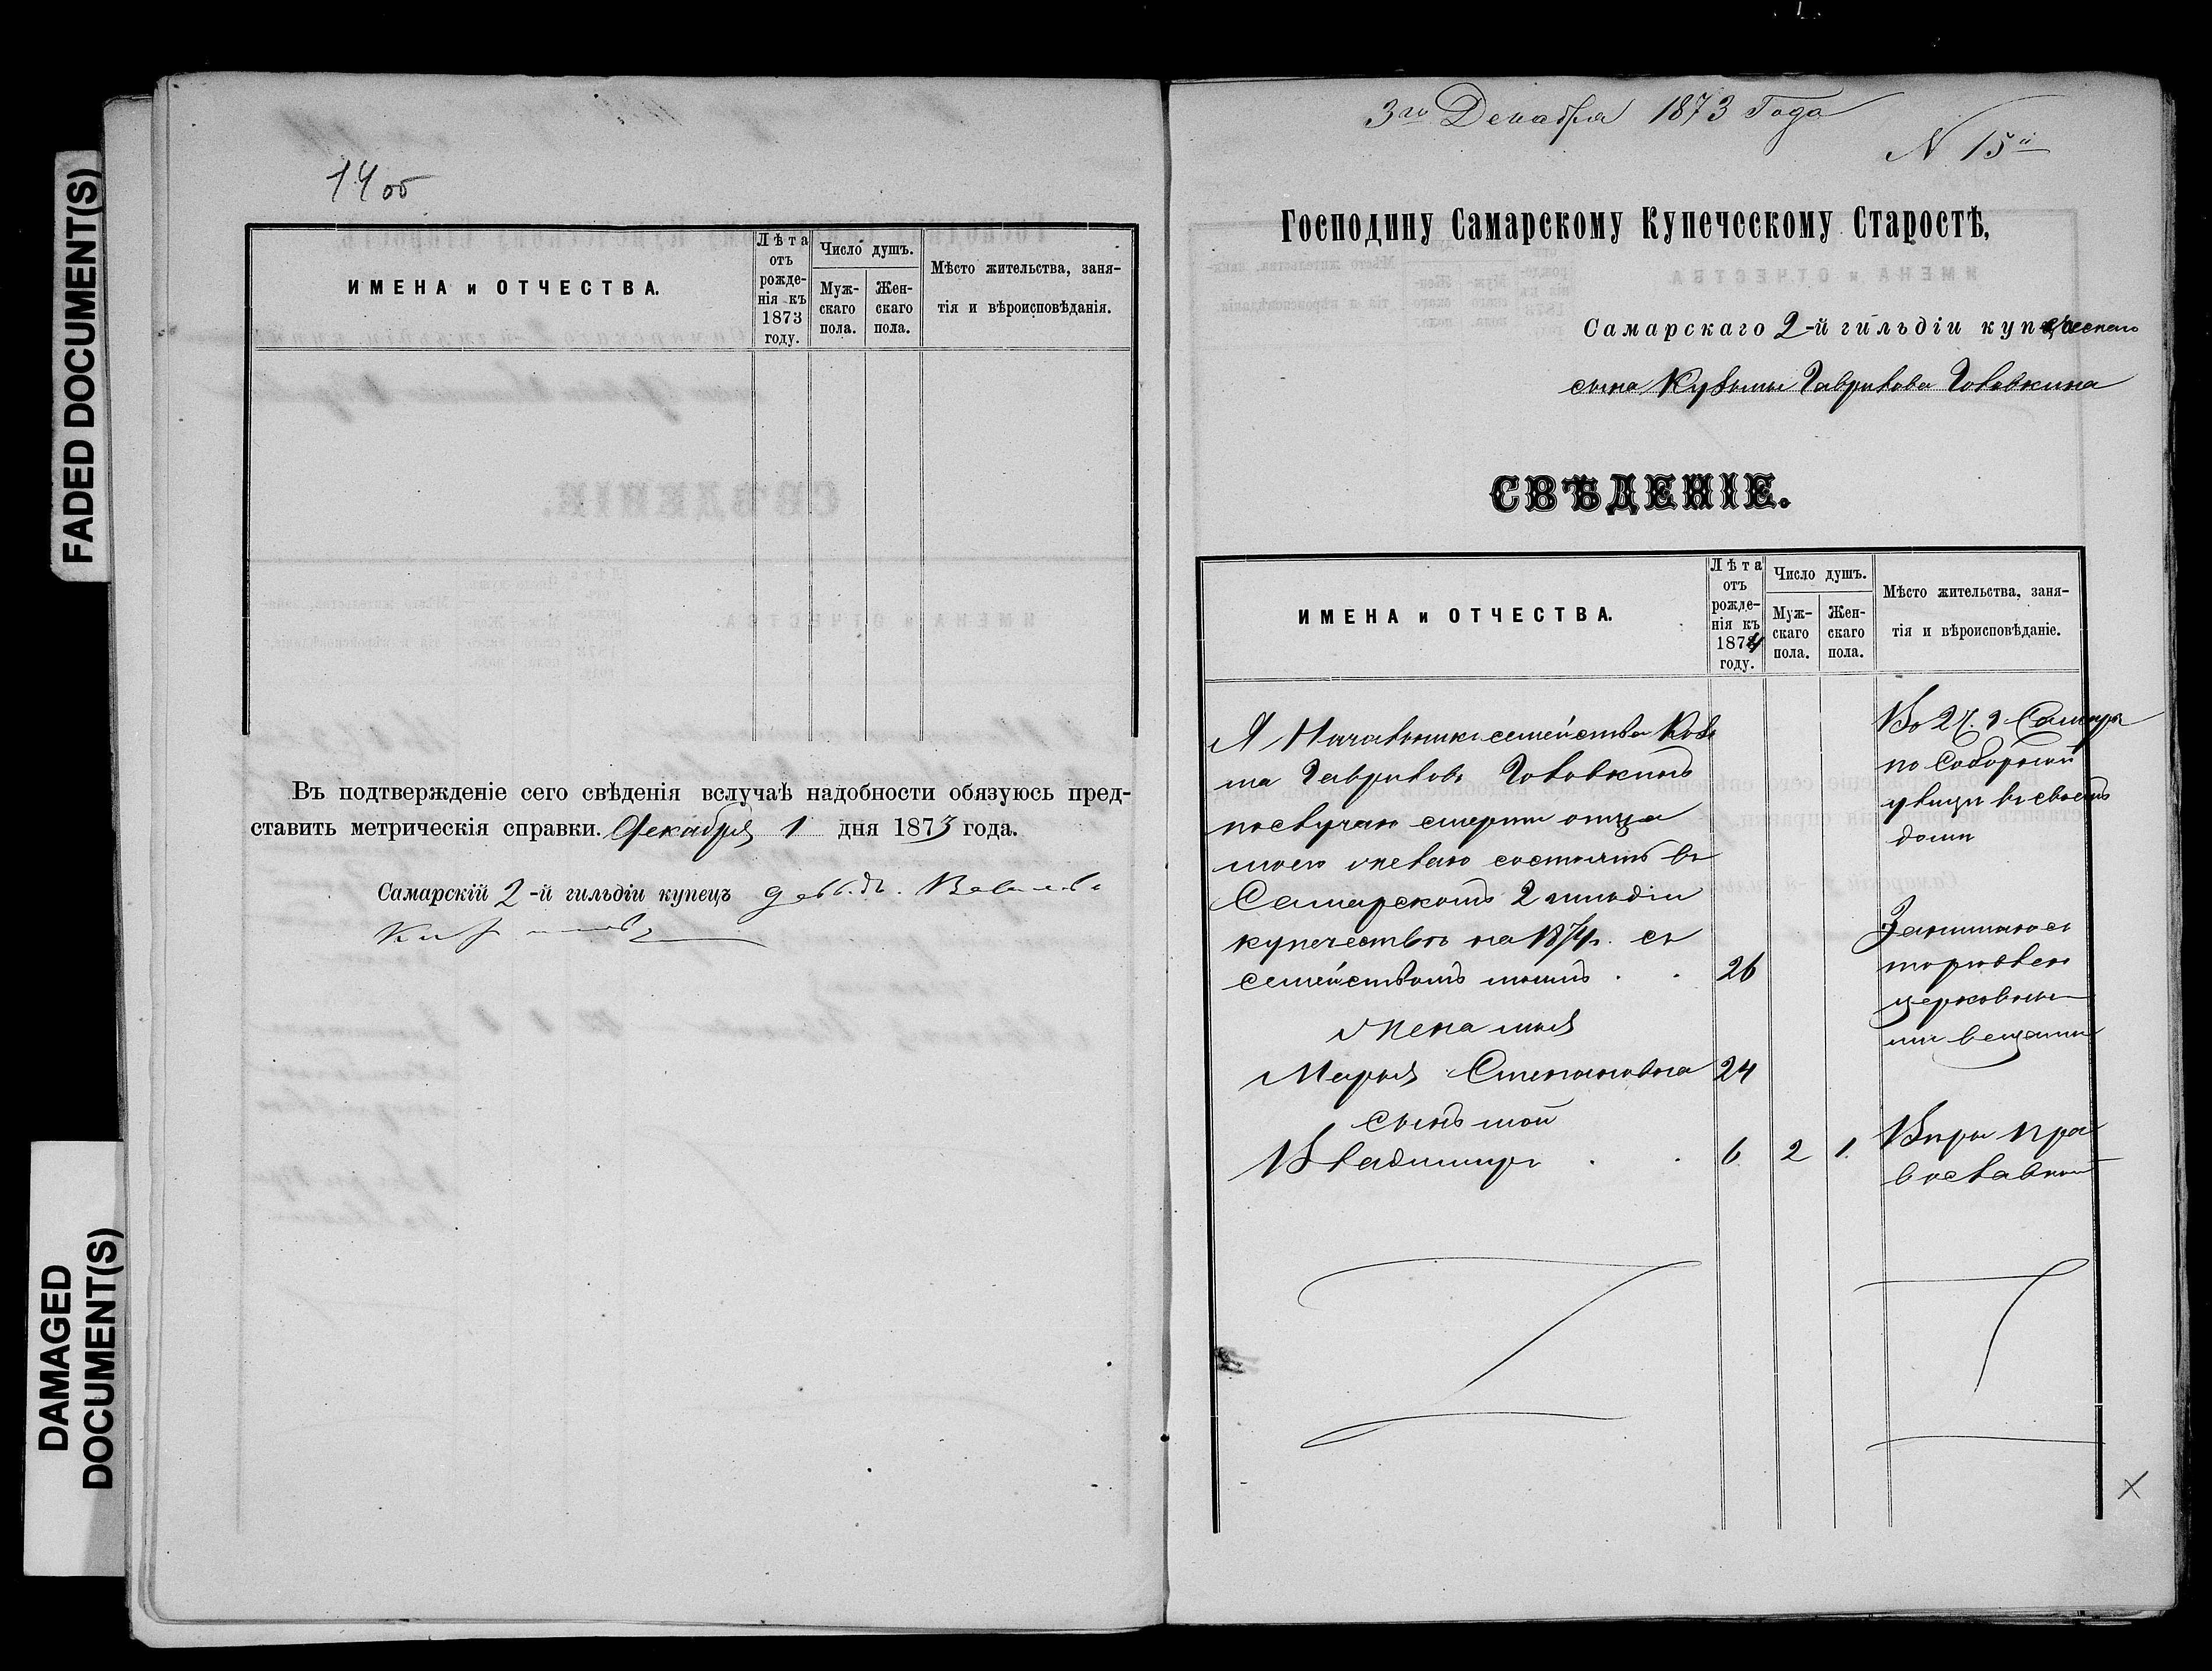 FADED DOCUMENT(S)
DAMAGED
DOCUMENT(S)
14об
ИМЕНА и ОТЧЕСТВА.
Лѣта отъ рожденія къ 1873 году.
Число душъ.
Мужскаго пола.
Женскаго пола.
Мѣсто жительства, заня-
тія и вѣроисповѣданія.
Въ подтвержденіе сего свѣденія вслучаѣ надобности обязуюсь пред-
ставить метрическія справки. Декабря 1 дня 1873 года.
Самарскій 2-й гильдіи купецъ
3го Декабря 1873 Года
N 15й
Господину Самарскому Купеческому Старостѣ,
Самарскаго 2-й гильдіи купеческаго
сына Кузьмы Гаврилова Головкина
СВѢДЕНІЕ.
ИМЕНА и ОТЧЕСТВА.
Лѣта отъ рожденія къ 1874 году.
Число душъ.
Мужскаго пола.
Женскаго пола.
Мѣсто жительства, заня-
тія и вѣроисповѣданіе.
Я Начальникъ семейства Козь
ма Гавриловъ Головкинъ
послучаю смерти отца
моего желаю состоять въ
Самарскомъ 2 гильдіи
купечествѣ на 1874г. съ
семействомъ моимъ . . 26
Жена моя
Марья Степановна 24
сынъ мой
Владимиръ . . 6 2 1
Во 2 Ч. г Самары
по Соборной
улицѣ въ своемъ
домѣ
Занимаюсь
торговлею
церковны
ми вещами
Вѣры пра
вославной